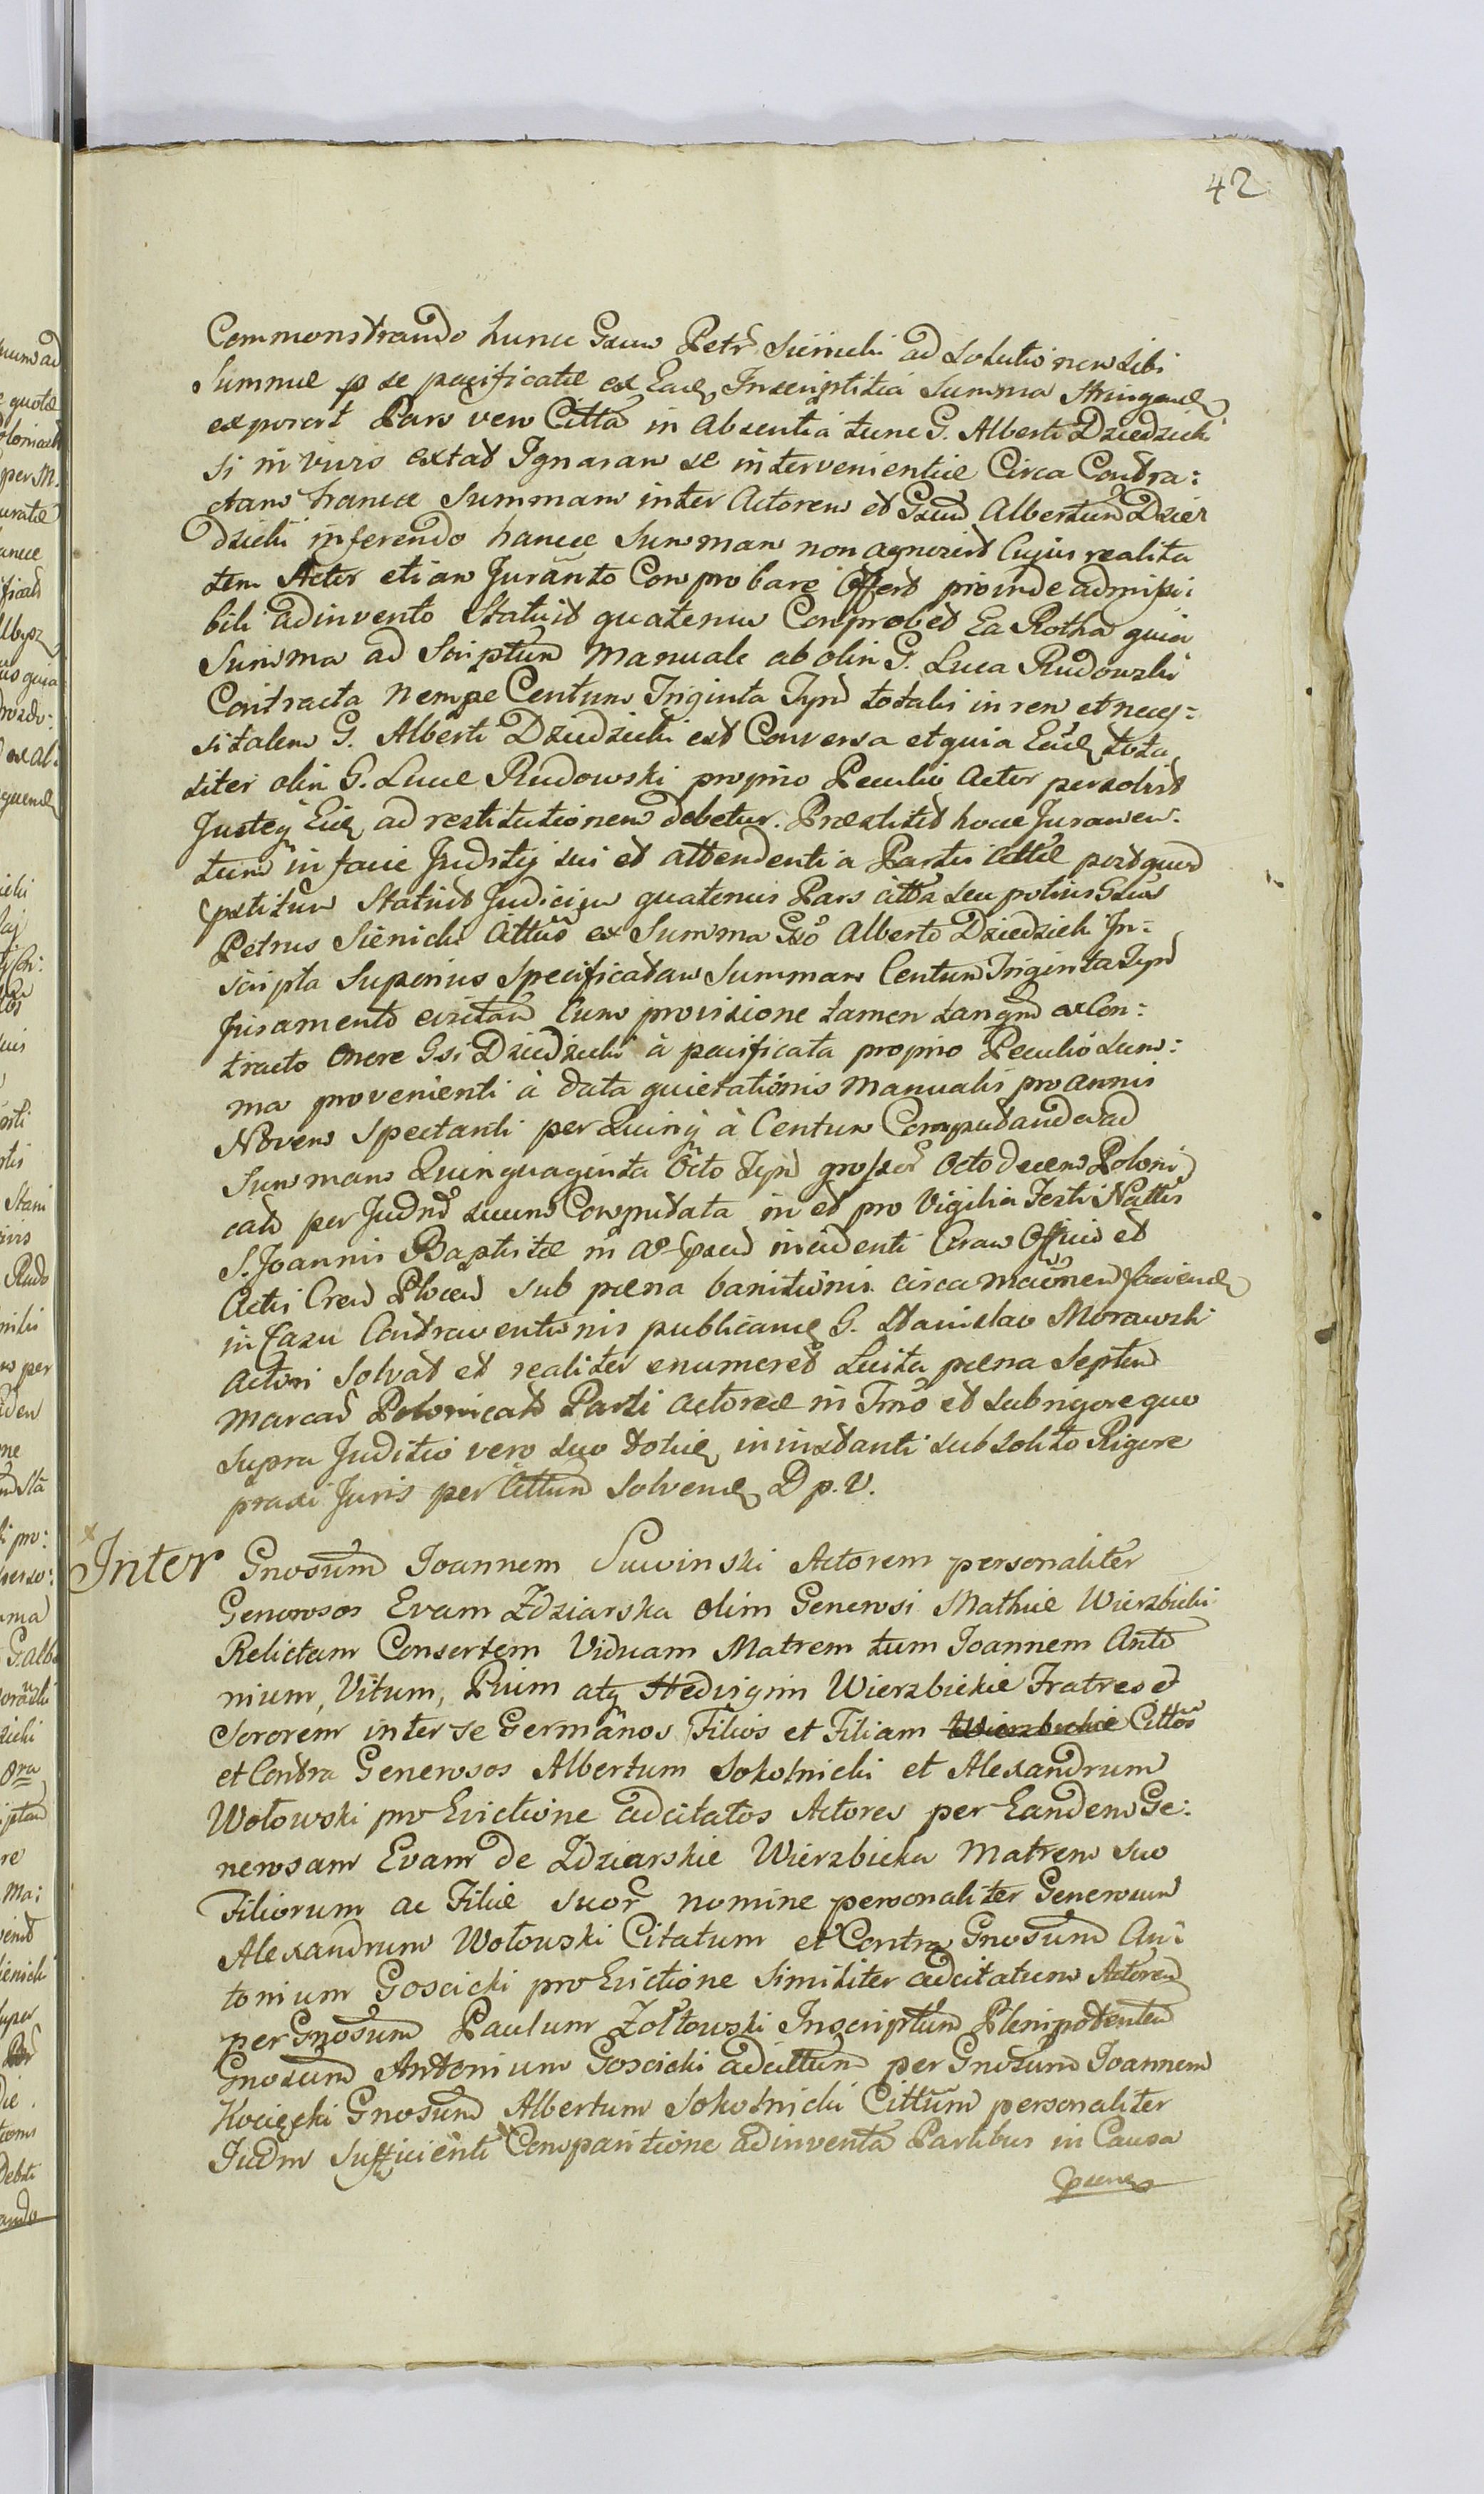 42
Commonstrando hunce Gsum Petr Sienicki ad Solutionem sibi
Summæ p se pacificatæ ex Eadq Inscriptitia Summa stringendq
exposcit Pars vero Citta in absentia tunc G. Alberti Dziedzicki
si in vivis extat Ignaram se intervenientiæ Circa Contra:
ctam hance Summam inter Actorem et Gsum Albertum Dzier
dzicki inferendo hance Summam non agnoscit Cujus realita
tem Actor etiam Juranto Comprobare Offert proinde admissi:
bili adinvento Statuit quatenus Comprobet Ea Rotha quia
Summa ad Scriptum Manuale ab olim G. Luca Rudowski
Contracta nempe Centum Triginta Tynd totalis in rem et neces=
sitatem G. Alberti Dziedzicki est Conversa et quia Eadq tota
liter olim G. Lucæ Rudowski proprio Peculio Actor persolvit
Justeq Eidq ad restitutionem debetur. Præstitit hocce Juramen:
tum in facie Juditij sui et attendentia Partis Cittæ post quod
pstitum Statuit Judicium quatenus Pars citta seu potius Gsus
Petrus Sienicki Cittus ex Summa Gso Alberto Dziedzicki In=
scripta Superius Specificatam Summam Centum Triginta Tynd
Juramento evictam Cum provisione tamen tanqm ex Con:
tracto onere Gsi Dziedzicki à pacificata proprio Peculio Sum:
ma provenienti à data quietationis Manualis pro annis
Novem Spectanti per Quinq à Centum Computanda ad
Summam Quinquaginta Octo Tynd grosser Octodecem Poloni
calt per Judnd suum Computata in et pro Vigilia Festi Nattis
S. Joannis Baptistæ in Ao psed incidenti Coram Officio et
Actis Cred Plocen sub pæna banitionis circa maumen faciendq
in Casu Contraventionis publicandq G. Stanislao Morawski
Actori Solvat et realiter enumeret Luita pæna Septem
Marcad Polonicalt Parti Actoreæ in Tmo et sub rigore quo
supra Juditio vero suo totiq in instanti sub solito Rigore
praxi Juris per Cittum Solvendq D p. V.
x
Inter Gnosum Joannem Suwinski Actorem personaliter
Generosos Evam Zdziarska olim Generosi Mathiæ Wierzbicki
Relictam Consortem Viduam Matrem tum Joannem Anto
nium, Vitum, Pium atq Hedvigim Wierzbickie Fratres et
Sororem inter se Germanos Filios et Filiam Wierzbickie Cittos
et Contra Generosos Albertum Sokolnicki et Alexandrum
Wołowski pro Evictione adcitatos Actores per Eandem Ge:
nerosam Evam de Zdziarskie Wierzbicka Matrem suo
Filiorum ac Filiæ suor nomine personaliter Generosum
Alexandrum Wołowski Citatum et Contra Gnosum An:
tonium Goscicki pro Evictione Similiter adcitatum Actorem
per Gnosum Paulum Zołtowski Inscriptum Plenipotentem
Gnosum Antonium Goscicki adcittum per Gnosum Joannem
Kocięcki Gnosum Albertum Sokolnicki Cittum personaliter
Judm Sufficienti Comparitione adinventa Partibus in Causa